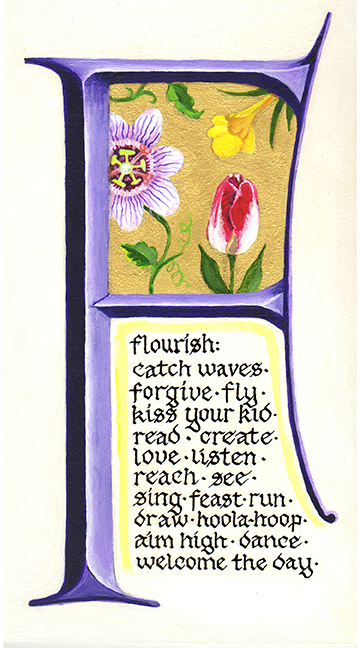 F
flourish:
catch waves·
forgive · fly ·
kiss your kid·
read · create·
love · listen ·
reach · see ·
sing · feast · run ·
draw · hoola-hoop·
aim high · dance ·
welcome the day ·